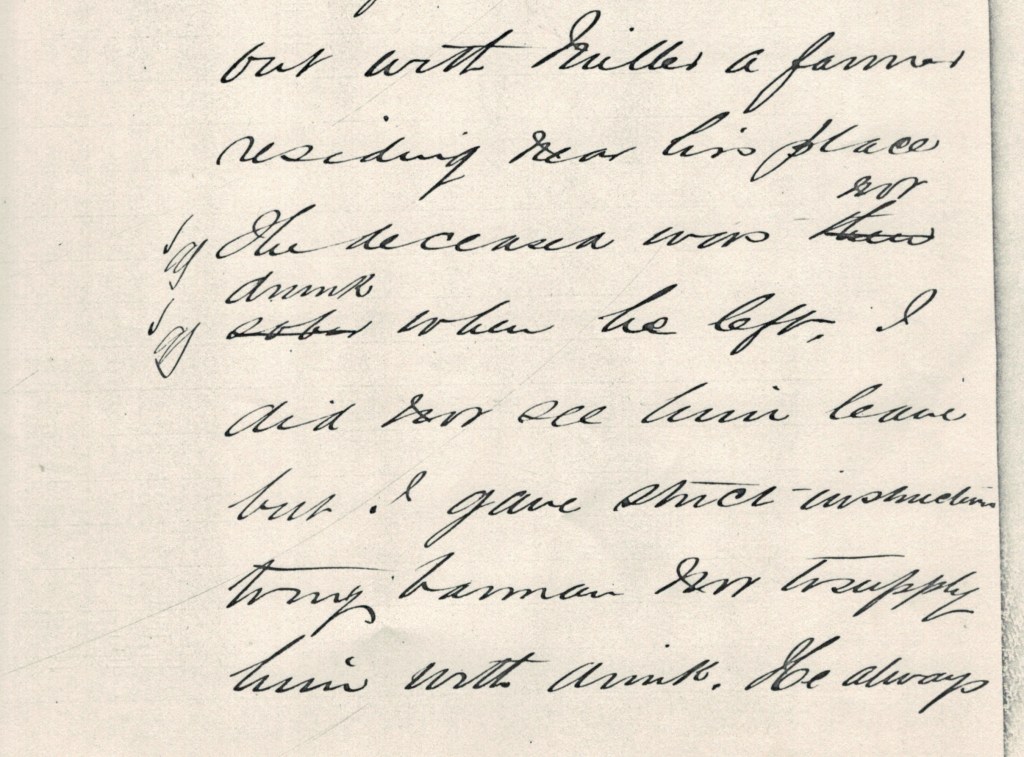 out with Miller a farmer
residing near his place
not
The deceased was then
drunk
sober when he left, I
did not see him leave
but I gave strict instructions
to my barman not to supply
him with drink. He always